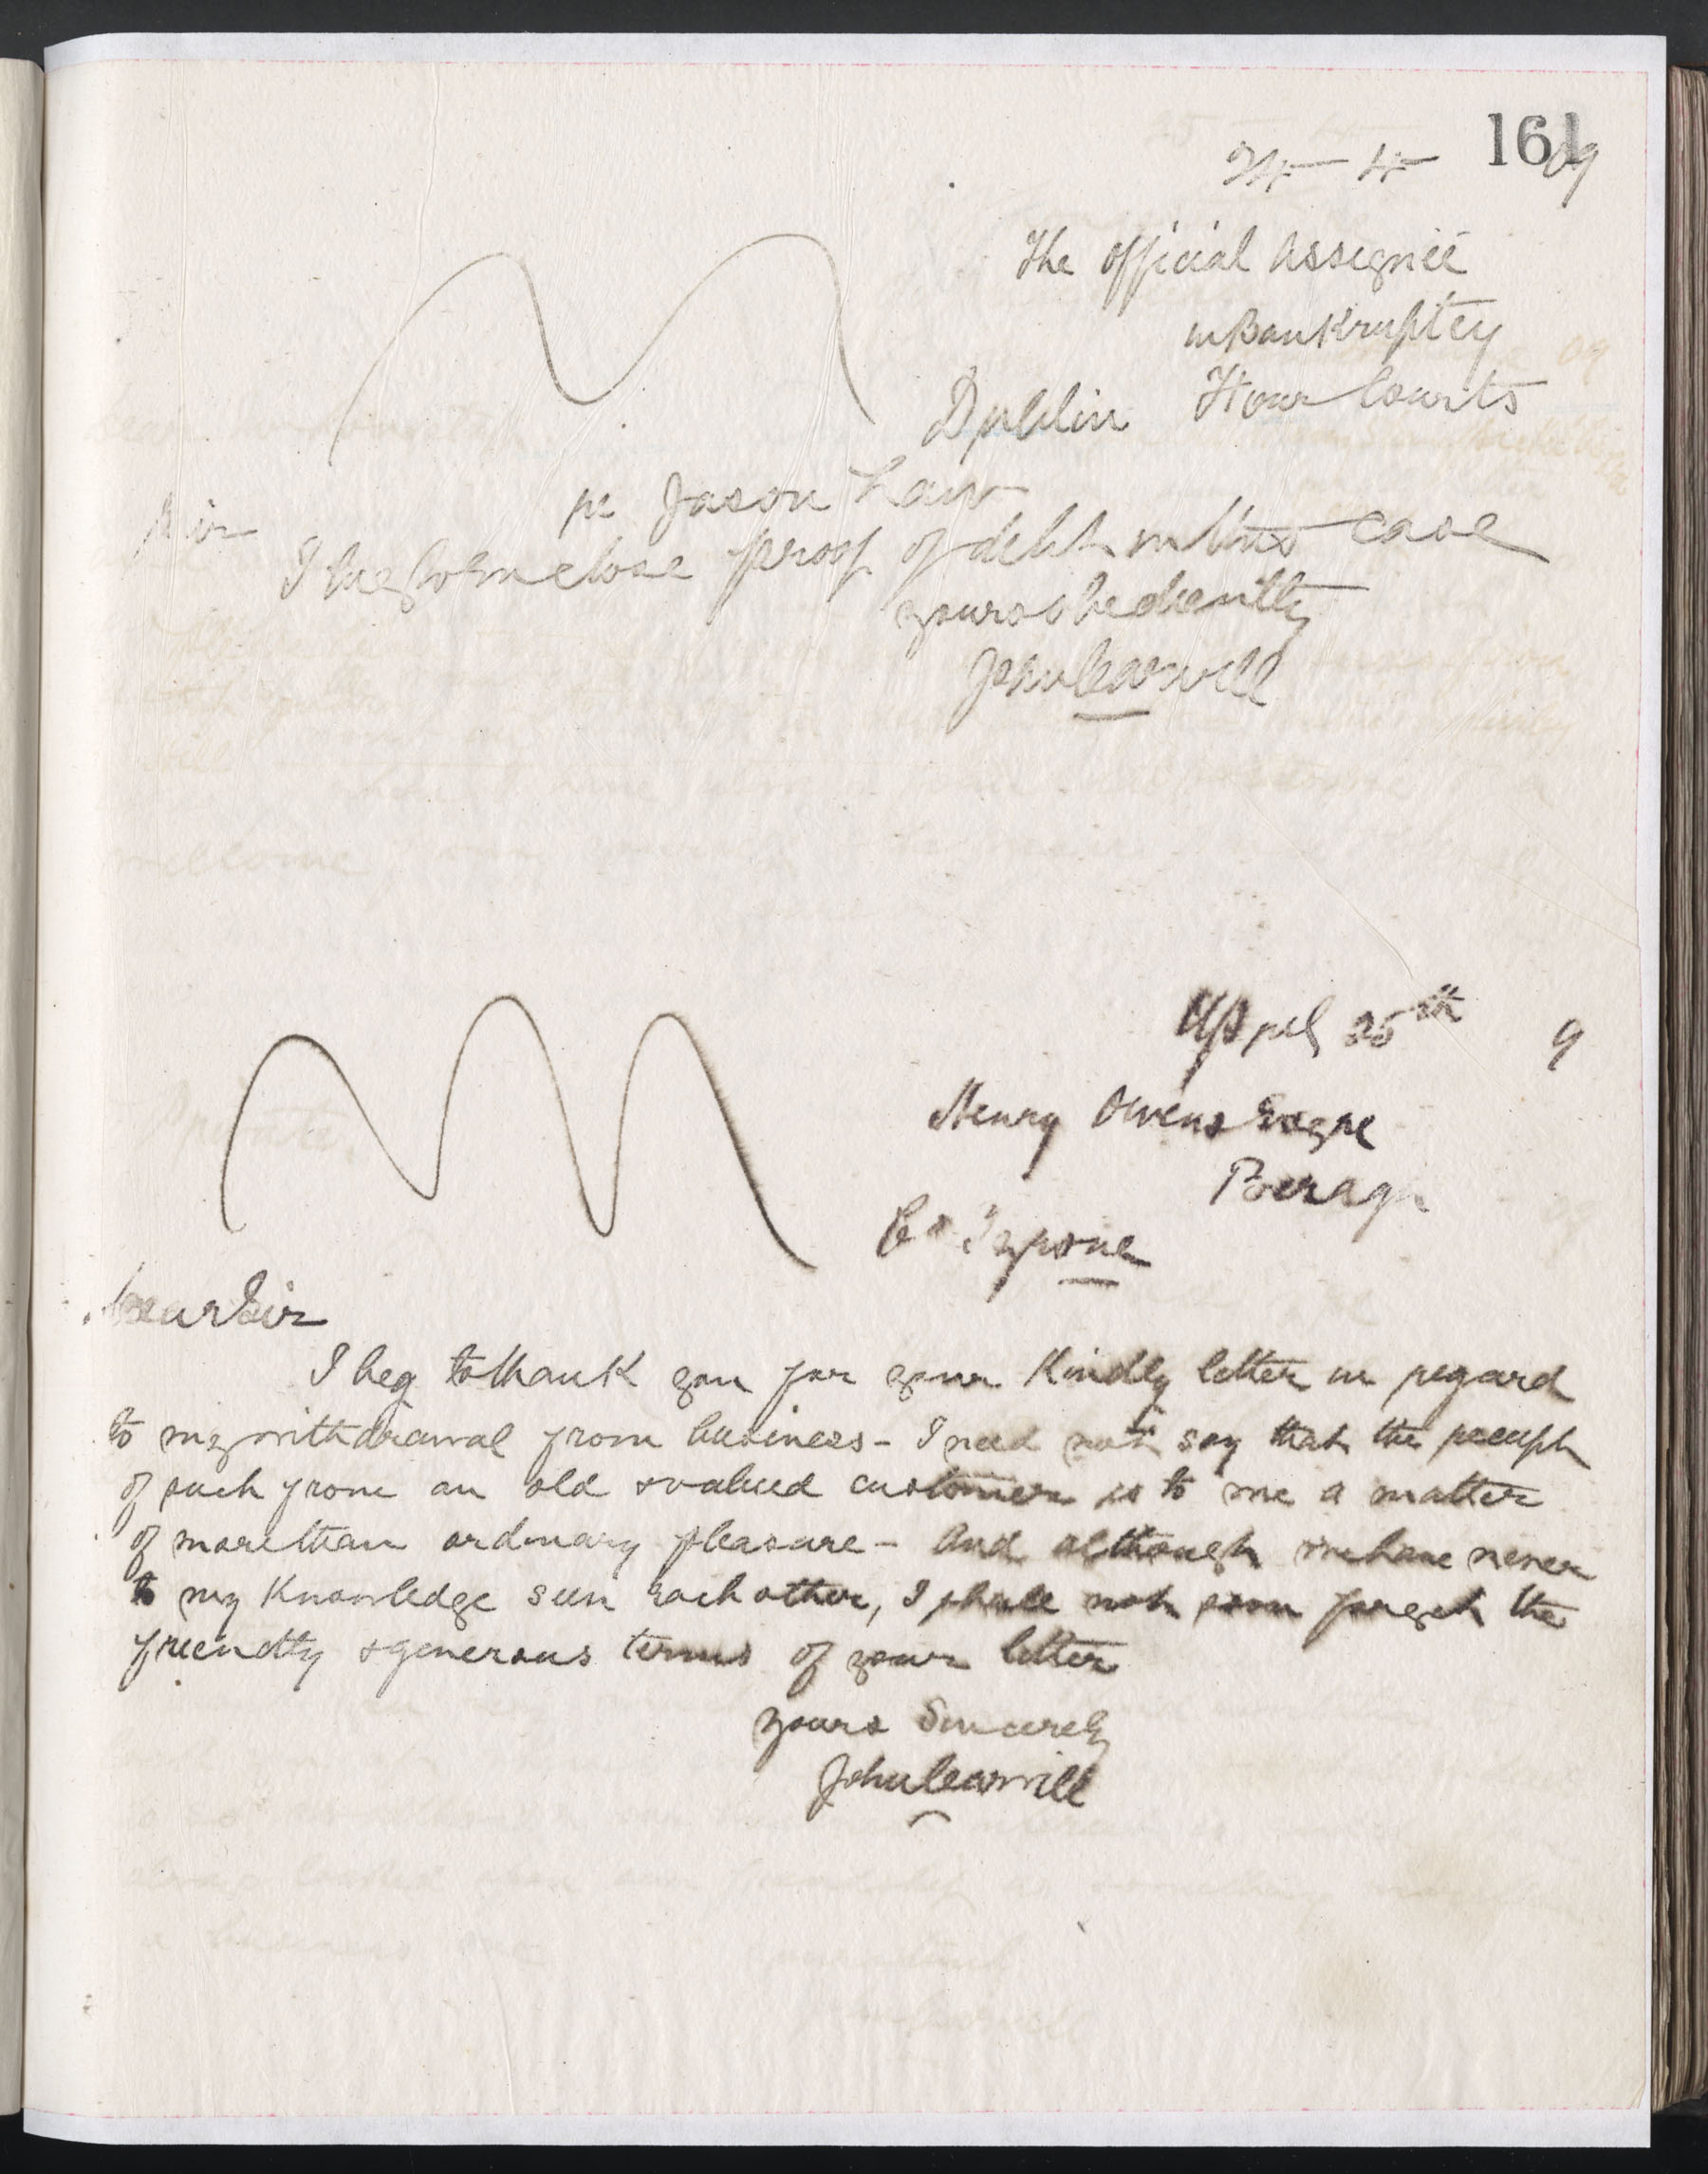 161
24 - 4 09
The Official Assignee
in Bankruptcy
Dublin Four Courts
Sir re Jason Law
I beg to enclose proof of debt in this case
yours obediently
John Carvill
April 25th 9
Henry Owens Esqre
Co Tyrone
Dear Sir
I beg to thank you for your Kindly letter in regard
to my withdrawal from business - I need not say that the receipt
of such from an old & valued customer is to me a matter
of more than ordinary pleasure - And although we have never
to my Knowledge seen each other, I shall not soon forget the
friendly & generous terms of your letter
yours Sincerely
John Carvill